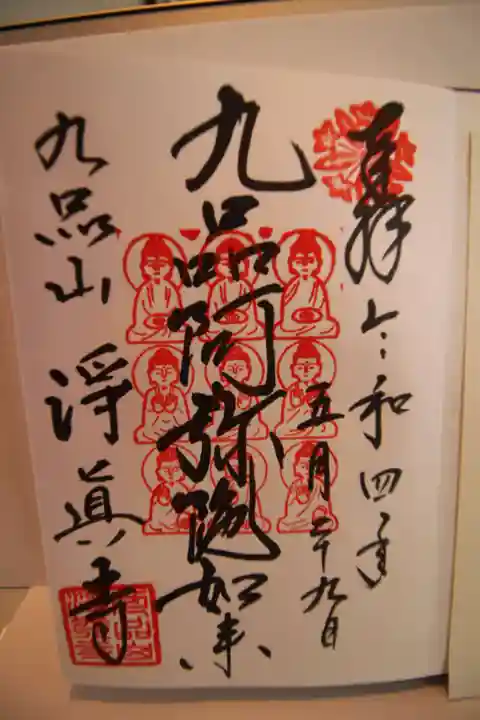 奉拝 令和四年
五月二十九日
九品阿弥陀如来
九品山 浄真寺